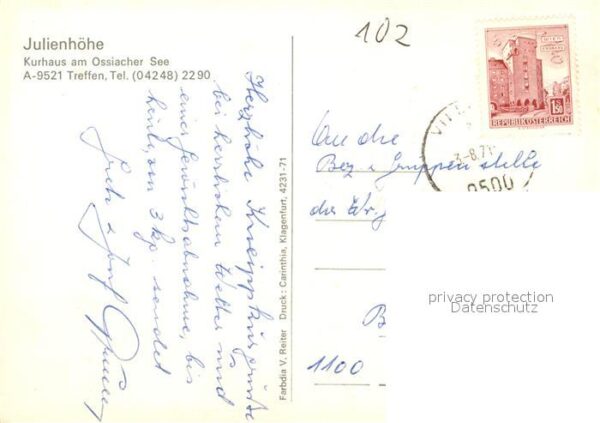 Julienhöhe
Kurhaus am Ossiacher See
A-9521 Treffen, Tel. (04248) 2290
Herzliche Kneippkurgrüße
bei herrlichem Wetter und
einer Gewichtsabnahme, bis
heute, von 3 kg sendet
Farbdia V. Reiter Druck: Carinthia, Klagenfurt, 4231-71
102
REPUBLIK ÖSTERREICH
-8.71
9500
An die
Bez Gruppenstelle
der
1100
privacy protection
Datenschutz